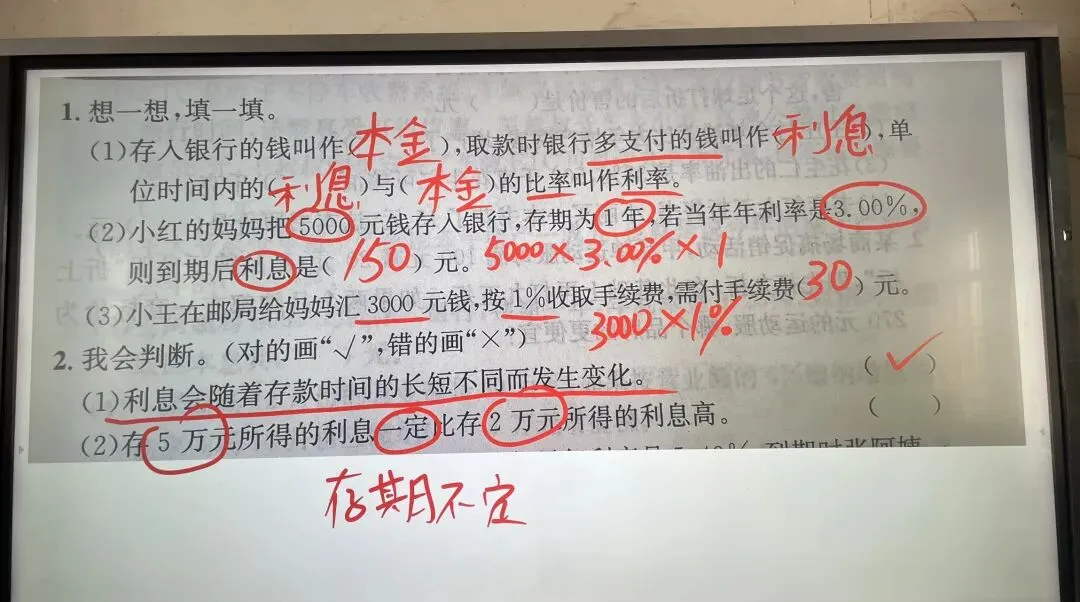 1. 想一想,填一填。
(1)存入银行的钱叫作(本金),取款时银行多支付的钱叫作(利息),单
位时间内的(利息)与(本金)的比率叫作利率。
(2)小红的妈妈把 5000 元钱存入银行,存期为 1 年,若当年年利率是3.00%,
则到期后利息是(150)元。5000×3.00%×1
(3)小王在邮局给妈妈汇 3000 元钱,按 1%收取手续费,需付手续费(30)元。
3000×1%
2. 我会判断。(对的画“√”,错的画“×”)
(1)利息会随着存款时间的长短不同而发生变化。 (✓)
(2)存 5 万元所得的利息一定比存 2 万元所得的利息高。 ( )
存期不定